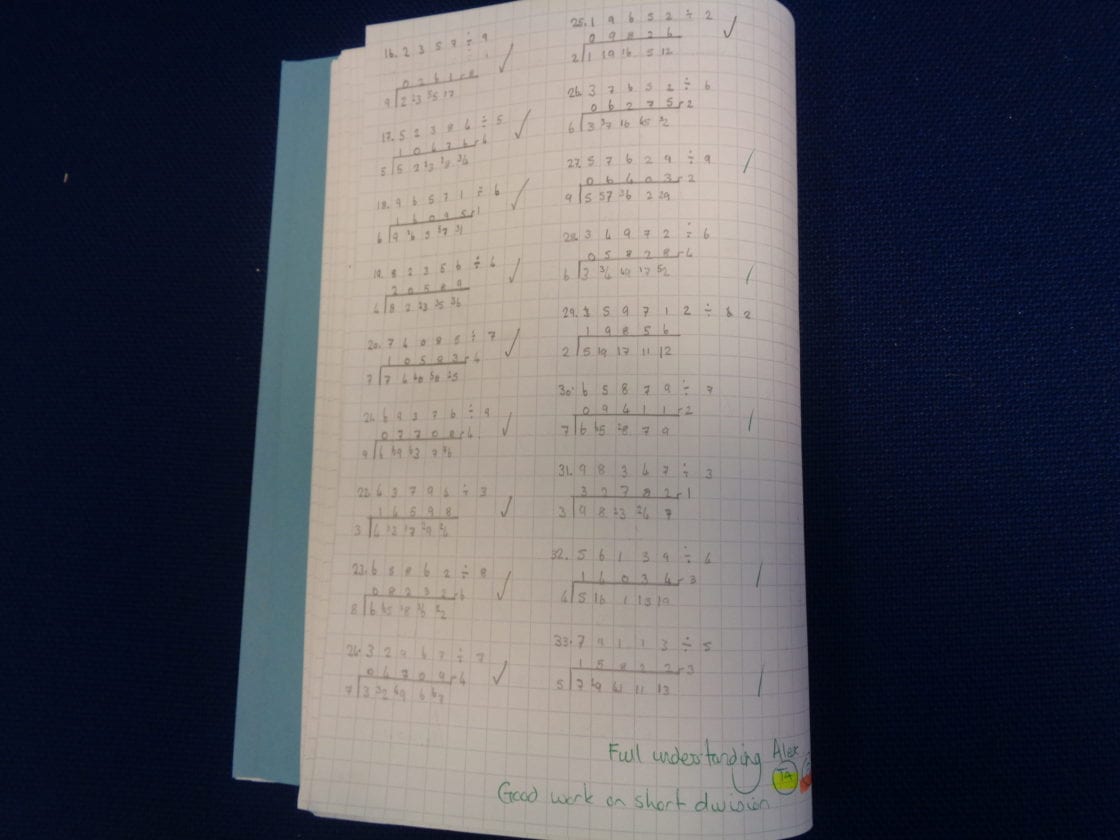 16. 2 3 5 7 ÷ 9
0 2 6 1 r 8
9 2 23 55 17
17. 5 2 3 8 4 ÷ 5
1 0 4 7 6 r 4
5 5 2 23 38 34
18. 9 6 5 7 1 ÷ 6
1 6 0 9 5 r 1
6 9 36 5 57 31
19. 8 2 3 5 6 ÷ 4
2 0 5 8 9
4 8 2 23 35 36
20. 7 4 0 8 5 ÷ 7
1 0 5 8 3 r 4
7 7 4 40 58 25
21. 6 9 3 7 6 ÷ 9
0 7 7 0 8 r 4
9 6 69 63 7 76
22. 4 3 7 9 4 ÷ 3
1 4 5 9 8
3 4 13 17 29 24
23. 6 5 8 6 2 ÷ 8
0 8 2 3 2 r 6
8 6 65 18 26 22
24. 3 2 9 6 7 ÷ 7
0 4 7 0 9 r 4
7 3 32 49 6 67
25. 1 9 6 5 2 ÷ 2
0 9 8 2 6
2 1 19 16 5 12
26. 3 7 6 5 2 ÷ 6
0 6 2 7 5 r 2
6 3 37 16 45 32
27. 5 7 6 2 9 ÷ 9
0 6 4 0 3 r 2
9 5 57 36 2 29
28. 3 4 9 7 2 ÷ 6
0 5 8 2 8 r 4
6 3 34 49 17 52
29. 5 9 7 1 2 ÷ 2
1 9 8 5 6
2 5 19 17 11 12
30. 6 5 8 7 9 ÷ 7
0 9 4 1 1 r 2
7 6 65 28 7 9
31. 9 8 3 4 7 ÷ 3
3 2 7 8 2 r 1
3 9 8 23 24 7
32. 5 6 1 3 9 ÷ 4
1 4 0 3 4 r 3
4 5 16 1 13 19
33. 7 9 1 1 3 ÷ 5
1 5 8 2 2 r 3
5 7 29 41 11 13
Full understanding Alex
TA
Good work on short division